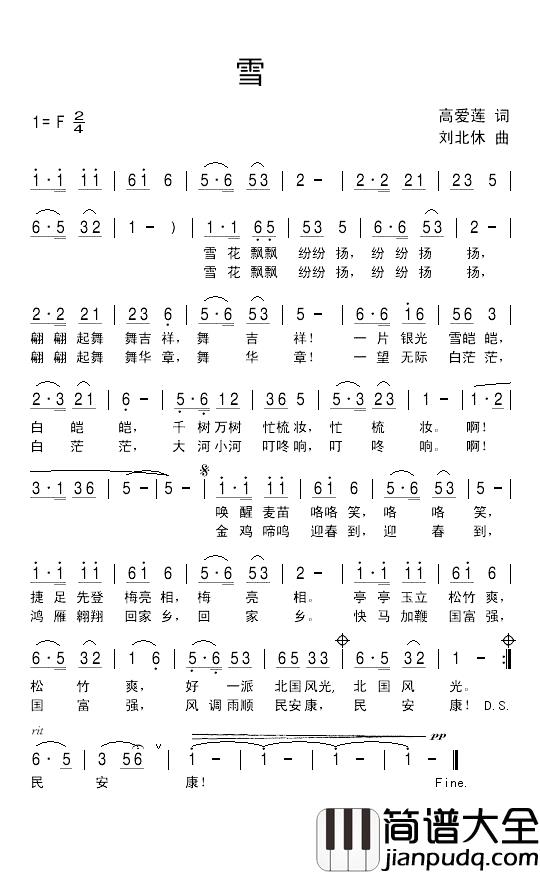 雪
1=F 2/4
高爱莲 词
刘北休 曲
1·1 11 | 61 6 | 5·6 53 | 2 - | 2·2 21 | 23 5 |
6·5 32 | 1 - ) | 1·1 65 | 53 5 | 6·6 53 | 2 - |
雪 花 飘飘 纷纷 扬, 纷 纷 扬 扬,
雪 花 飘飘 纷纷 扬, 纷 纷 扬 扬,
2·2 21 | 23 6 | 5·6 53 | 5 - | 6·6 16 | 56 3 |
翩 翩 起舞 舞吉 祥, 舞 吉 祥! 一 片 银光 雪皑 皑,
翩 翩 起舞 舞华 章, 舞 华 章! 一 望 无际 白茫 茫,
2·3 21 | 6 - | 5·6 12 | 36 5 | 5·3 23 | 1 - | 1·2 |
白 皑 皑, 千 树 万树 忙梳 妆, 忙 梳 妆。 啊!
白 茫 茫, 大 河 小河 叮咚 响, 叮 咚 响。 啊!
3·1 36 | 5 - | 5 - | 1·1 11 | 61 6 | 5·6 53 | 2 - |
唤 醒 麦苗 咯咯 笑, 咯 咯 笑,
金 鸡 啼鸣 迎春 到, 迎 春 到,
1·1 11 | 61 6 | 5·6 53 | 2 - | 1·1 11 | 61 6 |
捷 足 先登 梅亮 相, 梅 亮 相。 亭 亭 玉立 松竹 爽,
鸿 雁 翱翔 回家 乡, 回 家 乡。 快 马 加鞭 国富 强,
6·5 32 | 1 6 | 5·6 53 | 65 33 | 6·5 32 | 1 - :||
松 竹 爽, 好 一派 北国 风光, 北 国 风 光。
国 富 强, 风 调 雨顺 民安 康, 民 安 康! D.S.
rit pp
6·5 | 3 56 ∨ | 1 - | 1 - | 1 - | 1 - ||
民 安 康! Fine.
简谱大全
jianpudq.com